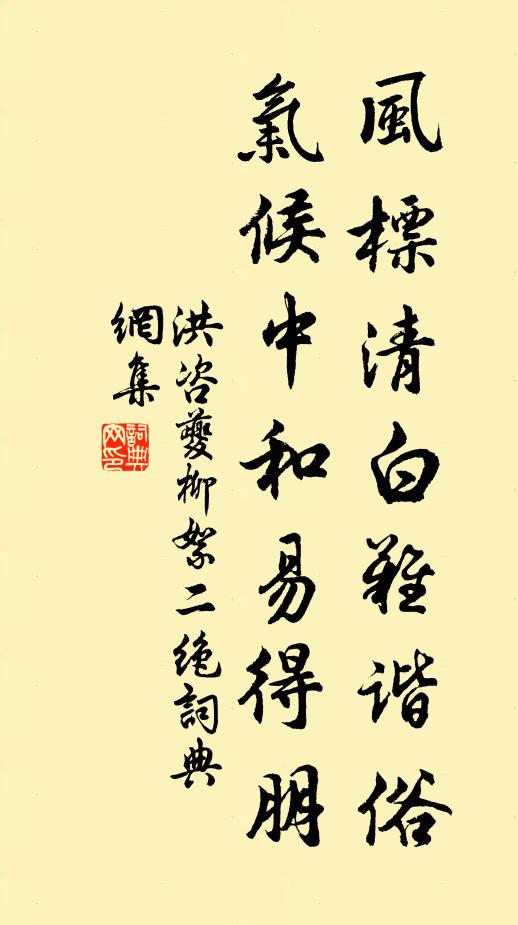 風標清白難谐俗
氣候中和易得朋
洪咨夔柳絮二绝詞典
網集
詞典
网印